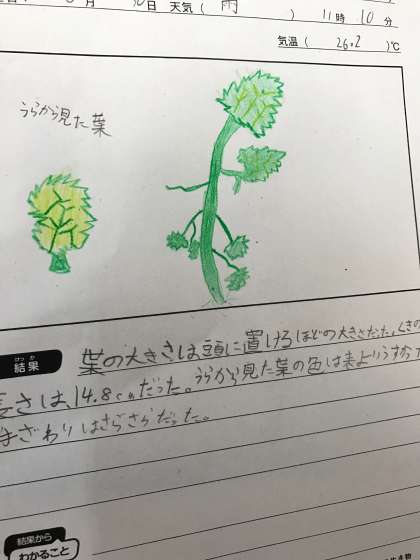 月 日 天気( 雨 ) 11時 10分
気温( 26.2 )℃
うらから見た葉
けっか
結果
葉の大きさは頭に置けるほどの大きさだった。くきの
長さは、14.8cmだった。うらから見た葉の色は表よりうすかっ
手ざわりはさらさらだった。
結果から
わかること